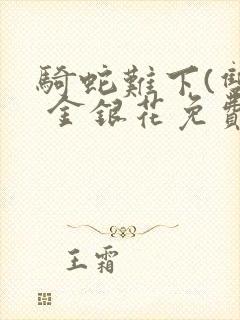 騎蛇難下(雙
金銀花免費
王霜